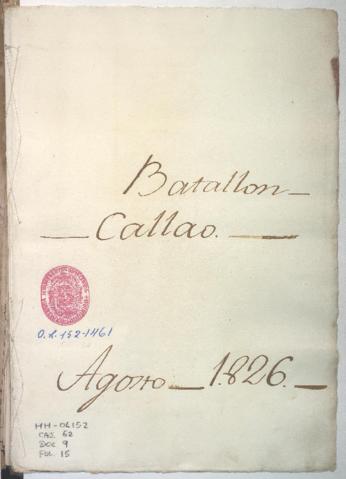 Batallon_
_ Callao. _
O.L. 152-1461
Agosto_1826._
HH-OL152
CAJ. 62
DOC 9
FOL. 15